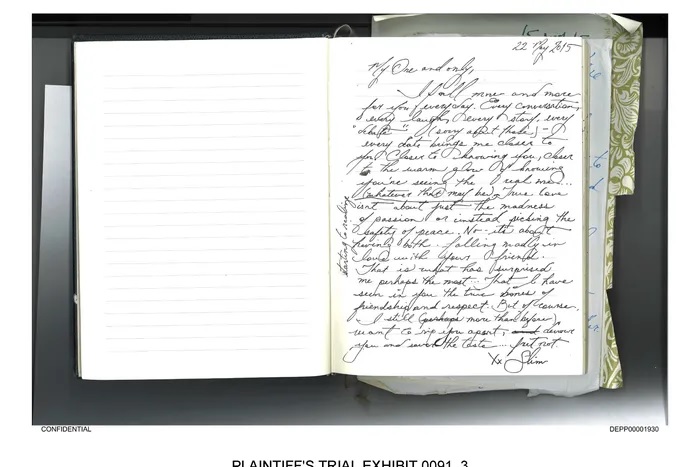 22 May 2015
My One and only,
I fall more and more
for you, every day. Every conversation,
every laugh, every story, every
(sorry about those) - 
every date brings me closer to
you. Closer to knowing you, closer
to the warm glow of knowing
you're seeing the real me...
(whatever that may be). True love
isn't about just the madness
of passion or instead picking the
safety of peace. No - it's about
having both. falling madly in
love with your friend.
That is what has surprised
me perhaps the most... That I have
seen in you the true bones of
friendship and respect. But of course,
I still (perhaps more than before),
want to rip you apart, devour
you and savor the taste...
Xx Slim
starting to realize
CONFIDENTIAL
DEPP00001930
PLAINTIFF'S TRIAL EXHIBIT 0091_3